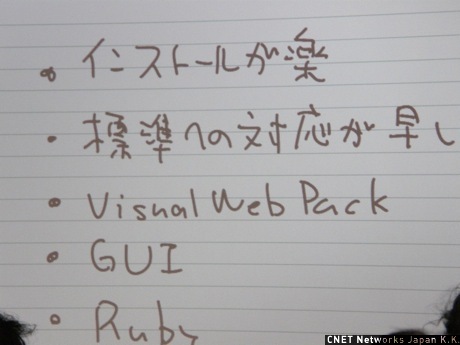 ・インストールが楽
・標準への対応が早い
・Visual Web Pack
・GUI
・Ruby
CNET Networks Japan K.K.